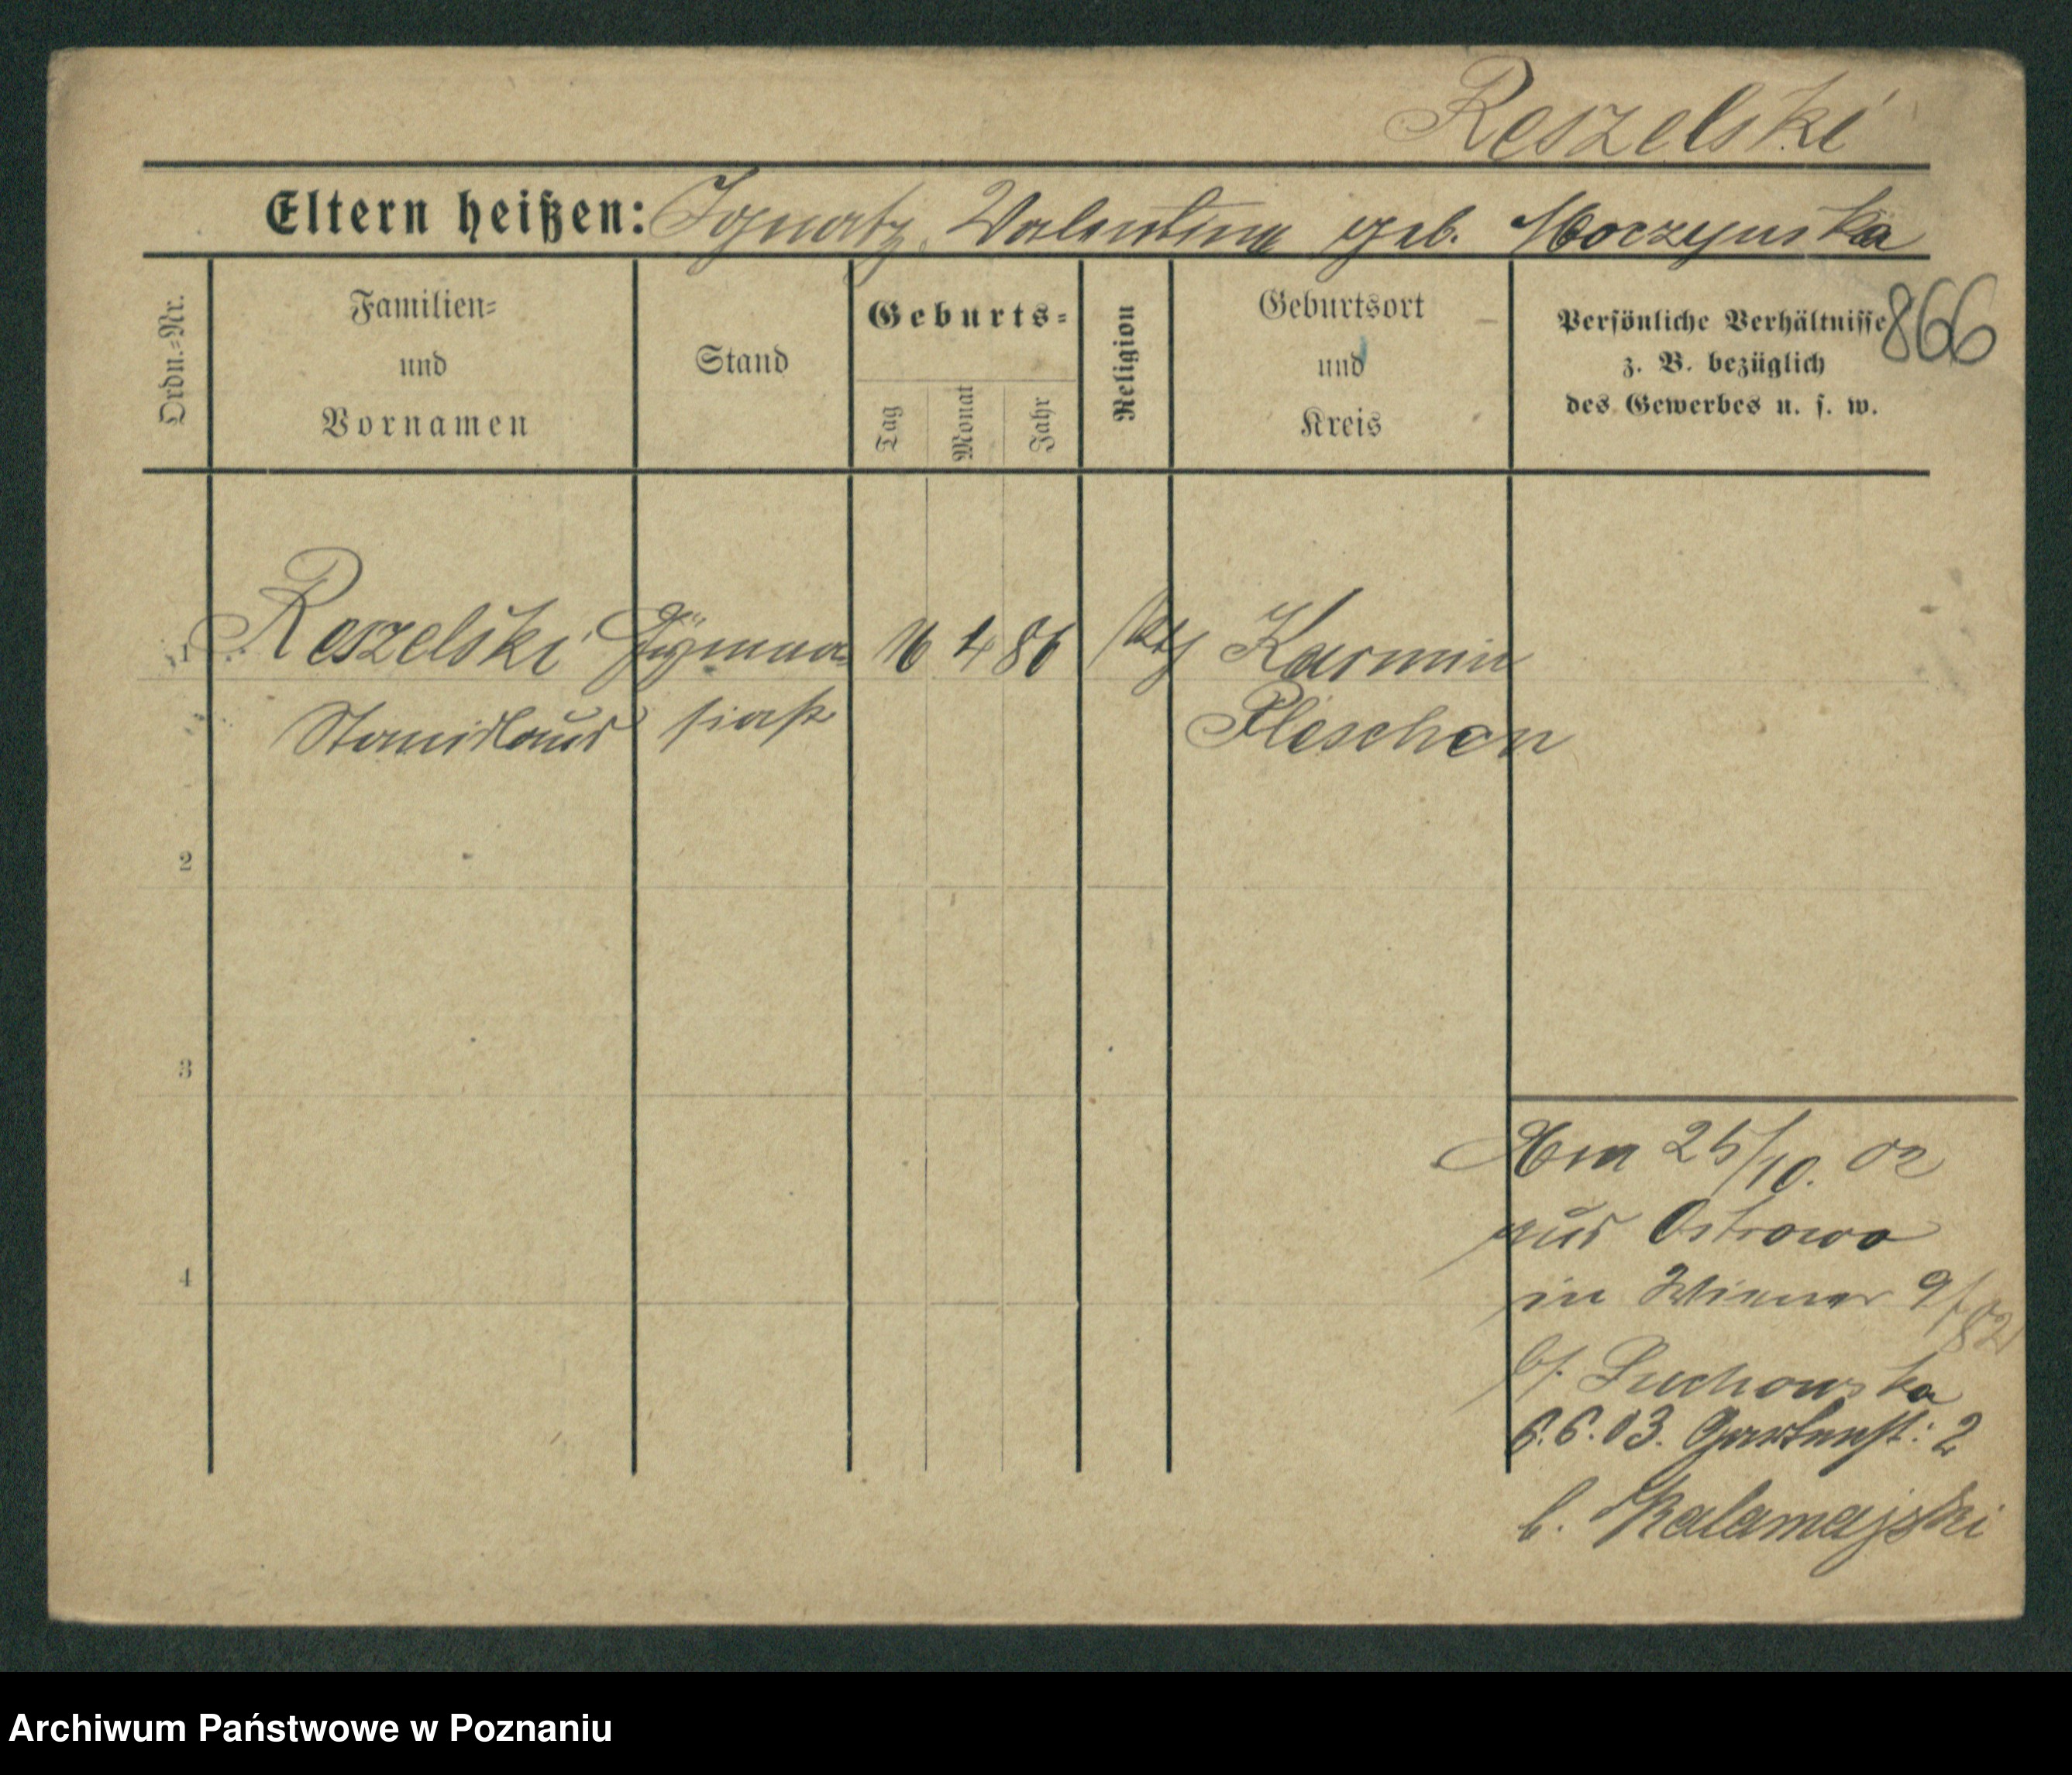 Reszelski
Eltern heißen: Ignatz, Valentina geb. Moczynska
Ordn.-Nr.
Familien-
und
Vornamen
Stand
Geburts-
Tag
Monat
Jahr
Religion
Geburtsort
und
Kreis
Persönliche Verhältnisse
z. B. bezüglich
des Gewerbes u. s. w.
866
1 Reszelski Gymna- 16 4 86 kth Karmin
Stanislaus siast Pleschen
2
3
4
Am 25/10. 02
aus Ostrowo
in Wiener 9/
b/. Suchowska
6.6.03. Gartenst: 2
b. Kalamajski
Archiwum Państwowe w Poznaniu